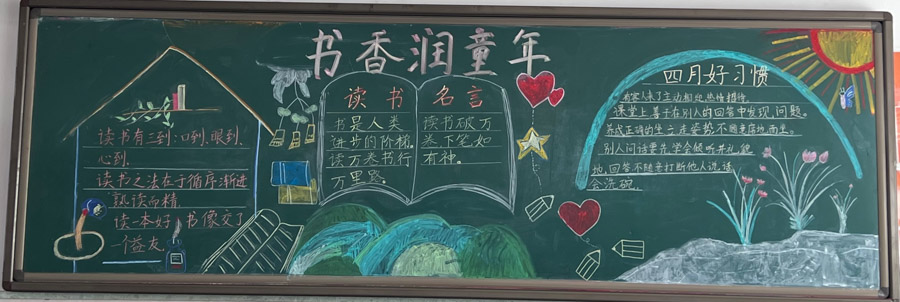 书香润童年
读书有三到：口到、眼到、
心到。
读书之法在于循序渐进
熟读而精
读一本好书像交了
一个益友
读书 名言
书是人类
进步的阶梯。
读万卷书行
万里路。
读书破万
卷下笔如
有神。
四月好习惯
有客人来了主动相迎，热情招待。
课堂上善于在别人的回答中发现问题。
养成正确的坐立走姿势不随意席地而坐。
别人问话要先学会倾听并礼貌
地回答不随意打断他人说话
会洗碗